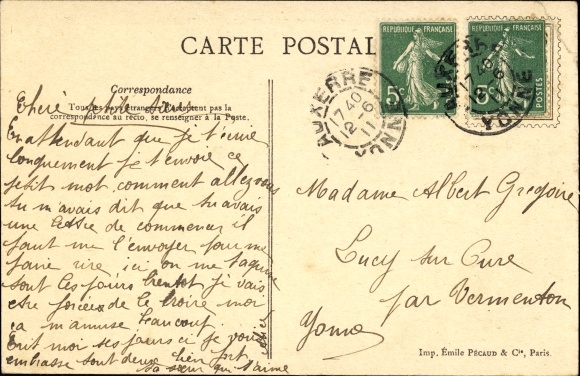 CARTE POSTALE
RÉPUBLIQUE FRANÇAISE
5c
POSTES
RÉPUBLIQUE FRANÇAISE
5c
POSTES
AUXERRE
17 40
12-6
11
YONNE
AUXERRE
17 40
12-6
11
YONNE
Correspondance
Tous les pays étrangers n'acceptent pas la
correspondance au recto, se renseigner à la Poste.
Chère petite sœur
En attendant que je t'écrive
longuement je t'envoie ce
petit mot. comment allez vous
tu m'avais dit que tu avais
une lettre de commencer il
faut me l'envoyer pour me
faire rire, ici on me taquine
tout les jours bientot je vais
etre forcée de le croire moi
ça m'amuse beaucoup.
Ecrit moi ses jours ci je vous
embrasse tout deux bien fort
ta sœur qui t'aime
Madame Albert Grégoire
Lucy sur Cure
par Vermenton
Yonne
Imp. Émile PÉCAUD & Cie, Paris.